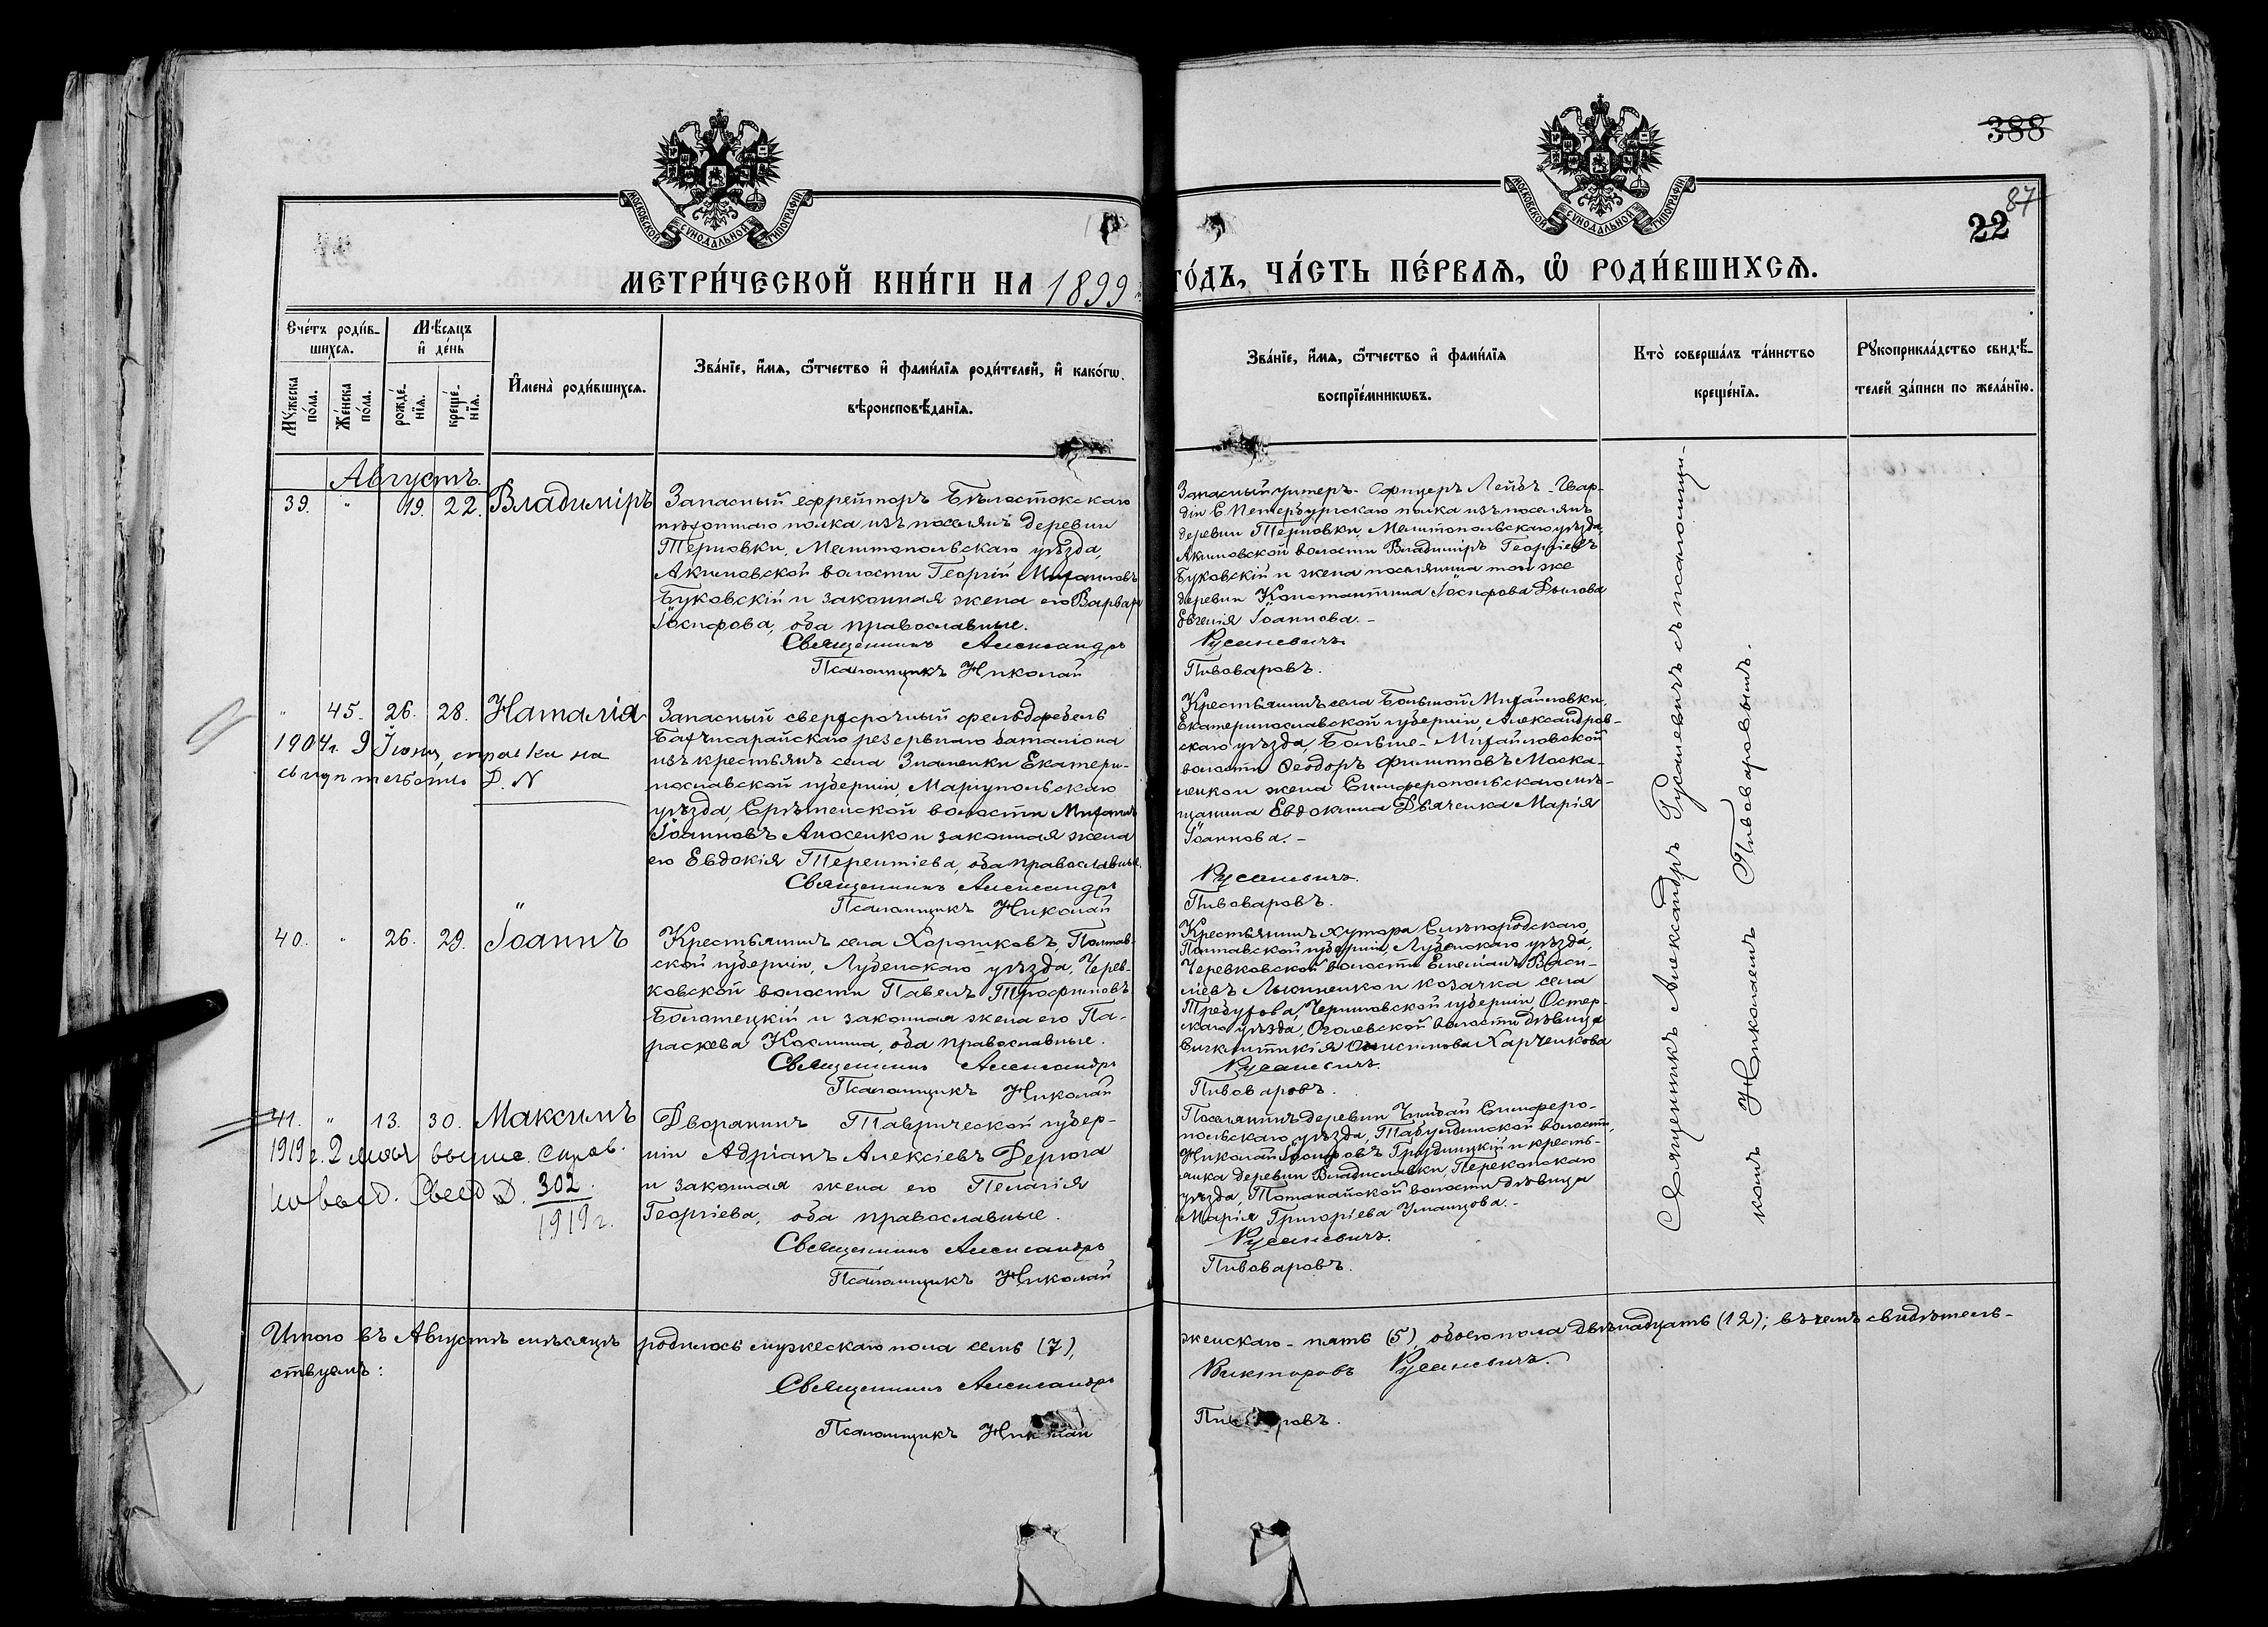 388
87
22
МОСКОВСКОЙ СѴНОДАЛЬНОЙ ТИПОГРАФІИ
МОСКОВСКОЙ СѴНОДАЛЬНОЙ ТИПОГРАФІИ
МЕТРИ́ЧЕСКОЙ КНИ́ГИ НА 1899 ГО́ДЪ, ЧА́СТЬ ПЕ́РВАѦ, Ѡ҆ РОДИ́ВШИХСѦ.
Счéтъ роди́в-
шихсѧ.
Мꙋ́жеска по́ла.
Же́нска по́ла.
Мѣ́сяцъ
и҆ де́нь
рожде́-
нїѧ.
креще́-
нїѧ.
И҆мена̀ роди́вшихсѧ.
Зва́нїе, и҆́мѧ, ѻ҆́тчество и҆ фами́лїѧ роди́телей, и҆ како́гѡ
вѣроисповѣ́данїѧ.
Зва́нїе, и҆́мѧ, ѻ҆́тчество и҆ фами́лїѧ
воспрїе́мникѡвъ.
Кто̀ соверша́лъ та́инство
креще́нїѧ.
Рꙋкоприкла́дство свидѣ́-
телей за́писи по жела́нїю.
Августъ.
39. " 19. 22. Владиміръ
Запасный ефрейторъ Бѣлостокскаго
пѣхотнаго полка изъ поселянъ деревни
Терновки, Мелитопольскаго уѣзда,
Акимовской волости Георгій Михаиловъ
Буковскій и законная жена его Варвара
Іосифова, оба православные.
Священникъ Александръ
Псаломщикъ Николай
Запасный унтеръ-офицеръ Лейбъ-Гвар-
діи С.Петербургскаго полка изъ поселянъ
деревни Терновки, Мелитопольскаго уѣзда,
Акимовской волости Владиміръ Георгіевъ
Буковскій и жена поселянина той же
деревни Константина Іосифова
Евгенія Іоаннова.-
Русаневичъ
Пивоваровъ.
" 45. 26. 28. Наталія
1904г. 9 Іюня, справки на
Д. N
Запасный сверхсрочный фельдфебель
Бахчисарайскаго резервнаго баталіона
изъ крестьянъ села Знаменки Екатери-
нославской губерніи, Маріупольскаго
уѣзда, Срѣтенской волости Михаилъ
Іоанновъ Аносенко и законная жена
его Евдокія Терентіева, оба православные.
Священникъ Александръ
Псаломщикъ Николай
Крестьянинъ села Большой Михайловки,
Екатеринославской губерніи, Александров-
скаго уѣзда, Больше-Михайловской
волости Ѳеодоръ Филипповъ Моска-
ленко и жена Симферопольскаго мѣ-
щанина Евдокима Дьяченка Марія
Іоаннова.-
Русаневичъ.
Пивоваровъ.
40. " 26. 29. Іоаннъ
Крестьянинъ села Хорошковъ, Полтав-
ской губерніи, Лубенскаго уѣзда, Черев-
ковской волости Павелъ Трофимовъ
Болотецкій и законная жена его Па-
раскева Косьмина, оба православные.
Священникъ Александръ
Псаломщикъ Николай
Крестьянинъ хутора
Полтавской губерніи, Лубенскаго уѣзда,
Черевковской волости Емеліанъ Васи-
ліевъ и козачка села
Требухова, Черниговской губерніи, Остер-
скаго уѣзда, волости дѣвица
Онисимова Харченкова
Русаневичъ.
Пивоваровъ.
41. " 13. 30. Максимъ
1919 г. 2 мая выше. справ.
Д. 302
1919 г.
Дворянинъ Таврической губер-
ніи Адріанъ Алексіевъ Дерюга
и законная жена его Пелагія
Георгіева, оба православные.
Священникъ Александръ
Псаломщикъ Николай
Поселянинъ деревни Симферо-
польскаго уѣзда, Табулдинской волости,
Николай Іосифовъ Грудницкій и кресть-
янка деревни Владиславки, Перекопскаго
уѣзда, волости дѣвица
Марія Григоріева Уманцова.-
Русаневичъ.
Пивоваровъ.
Священникъ Александръ Русаневичъ съ псаломщи-
комъ Николаемъ Пивоваровымъ.
Итого въ Августѣ мѣсяцѣ родилось мужескаго пола семь (7), женскаго - пять (5), обоего пола двѣнадцать (12); въ чемъ свидѣтель-
ствуемъ:
Священникъ Александръ Викторовъ Русаневичъ.
Псаломщикъ Николай Пивоваровъ.